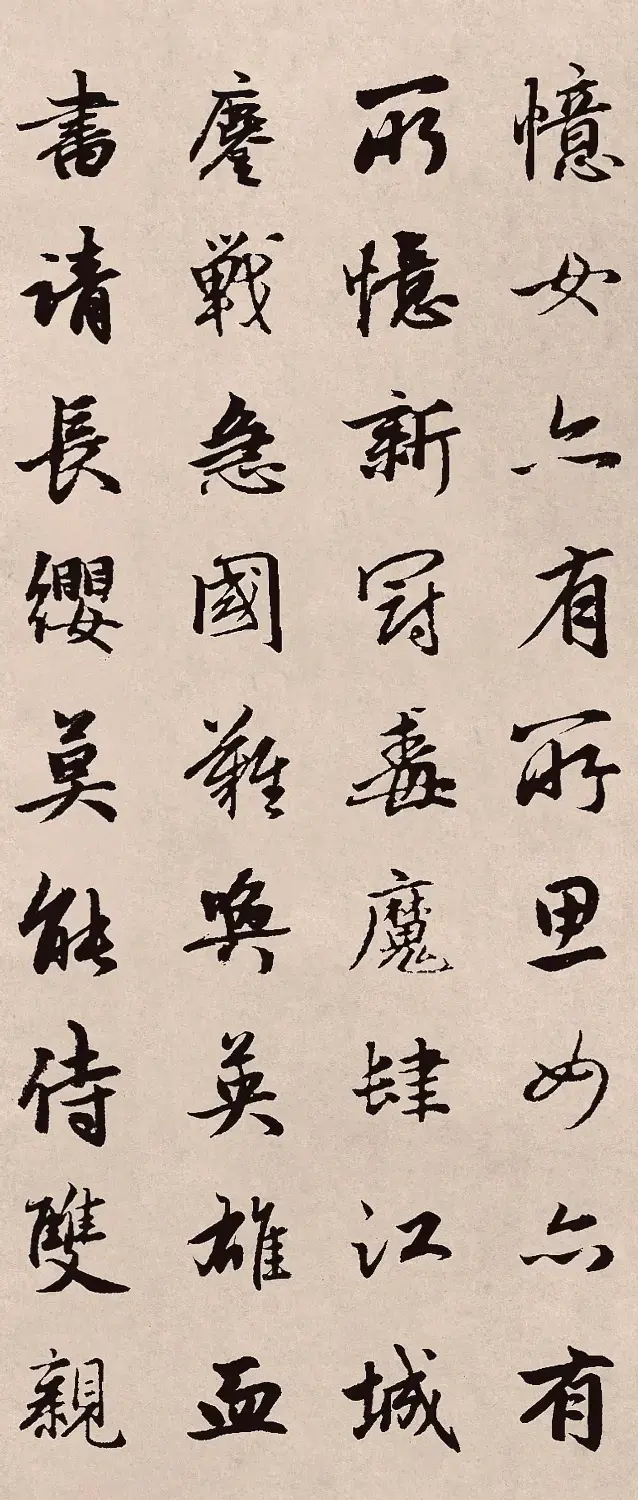 憶女亦有所思女亦有
所憶新冠毒魔肆江城
鏖戰急國難喚英雄血
書請長纓莫能侍雙親